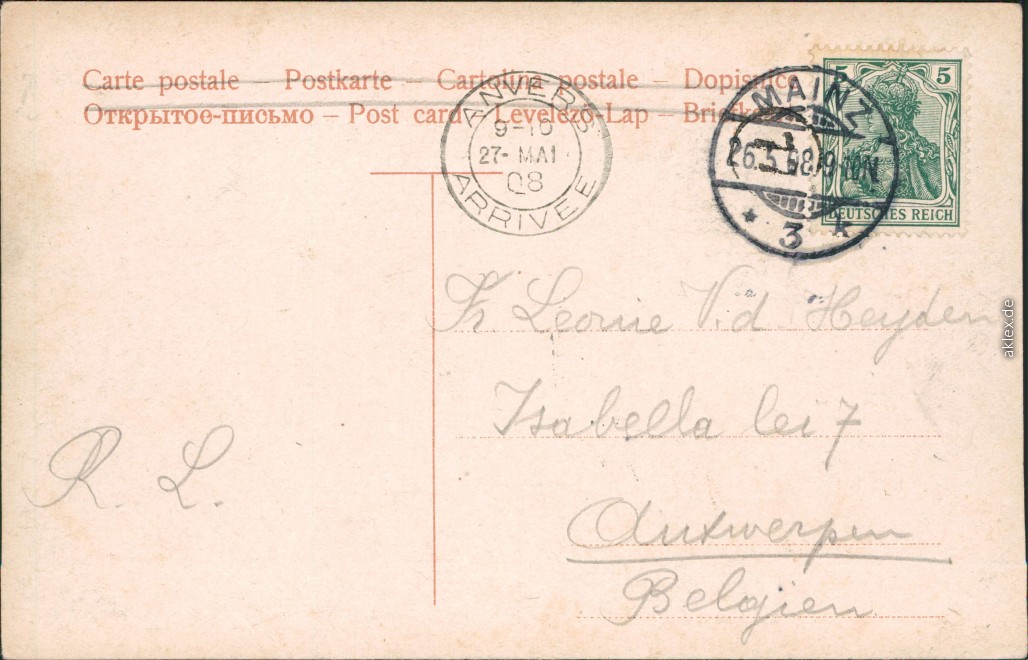 Carte postale – Postkarte – Cartolina postale – Dopisnice
Открытое-письмо – Post card – Levelező-Lap –
ANVERS
9-10
27- MAI
08
ARRIVEE
MAINZ
1
26.5.08.9-10N
* 3 k
5 5
DEUTSCHES REICH
Fr Leonie V.d. Heyden
Isabella lei 7
Antwerpen
Belgien
R. L.
aklex.de